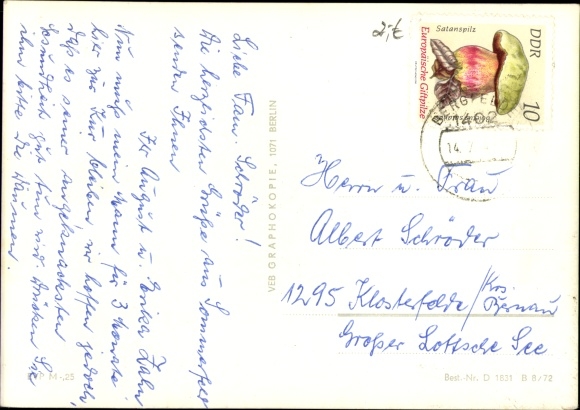 Liebe Fam. Schröder!
Die herzlichsten Grüße aus Sommerfeld
senden Ihnen
Ihr August u. Erika Zahn
Nun muß mein Mann für 3 Monate
hier zur Kur bleiben, wir hoffen jedoch,
daß es seiner angeknacksten
Gesundheit gut tun wird. Drücken Sie
ihm bitte die Daumen.
VEB GRAPHOKOPIE, 1071 BERLIN
M -,25
2,-€
Satanspilz
DDR
Europäische Giftpilze
10
1402
14.
Herrn u. Frau
Albert Schröder
1295 Klosterfelde / Krs. Bernau
Großer Lottsche See
Best.-Nr. D 1831 B 8/72